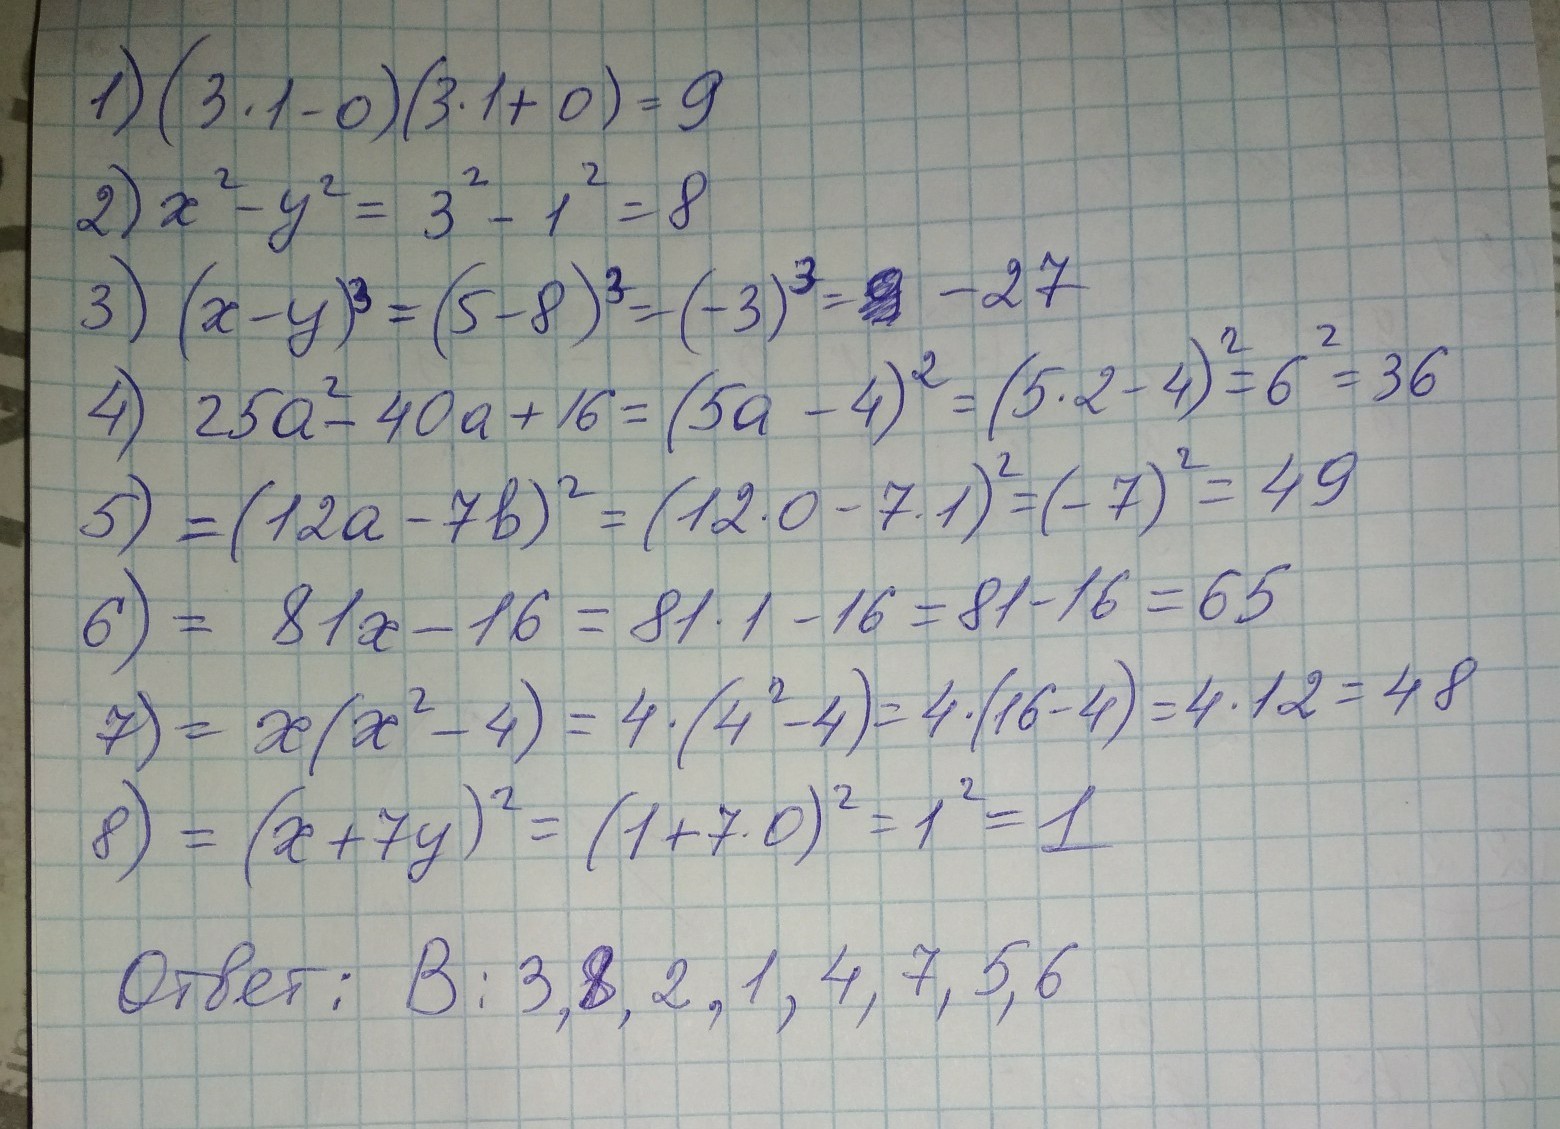 1) (3·1-0)(3·1+0)=9
2) x²-y²= 3²-1²=8
3) (x-y)³=(5-8)³=(-3)³= -27
4) 25a²-40a+16=(5a-4)²=(5·2-4)²=6²=36
5) =(12a-7b)²=(12·0-7·1)²=(-7)²=49
6) = 81x-16=81·1-16=81-16=65
7) = x(x²-4)=4·(4²-4)=4·(16-4)=4·12=48
8) =(x+7y)²=(1+7·0)²=1²=1
Ответ: В: 3,8,2,1,4,7,5,6